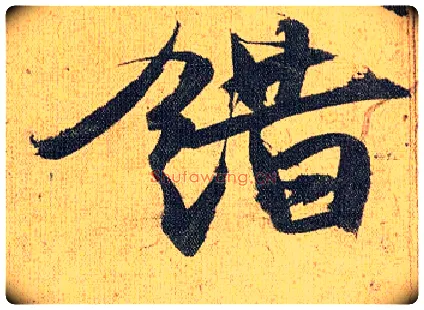 错
Shufawang.cn